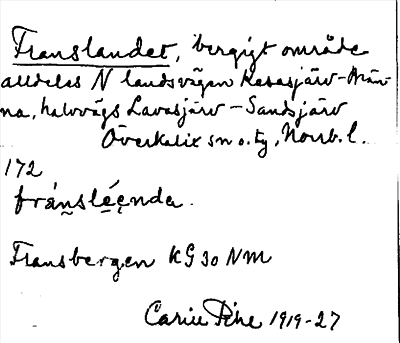 Franslandet, bergigt område
alldeles N landsvägen Rasasjärv-Brän-
na, halvvägs Lavasjärv - Sandsjärv
Överkalix sn o. tg, Norrb. l.
172
fránsléenda.
Fransbergen KG 30 NM
Carin Pihl 1919-27